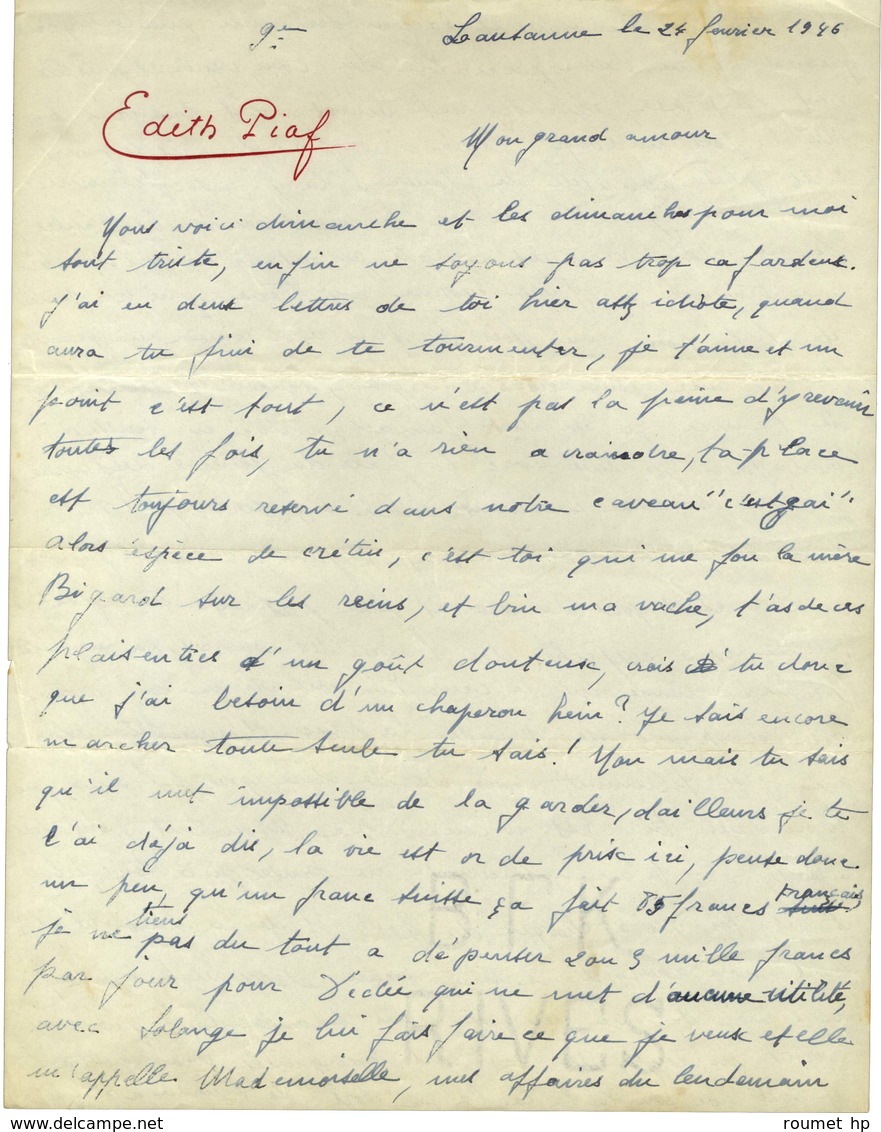 9e
Lausanne le 24 fevrier 1946
Edith Piaf
Mon grand amour
Nous voici dimanche et les dimanches pour moi
sont triste, enfin ne soyons pas trop cafardeux.
J'ai eu deux lettres de toi hier assez idiote, quand
aura tu fini de te tourmenter, je t'aime et un
point c'est tout, ce n'est pas la peine d'y revenir
toutes les fois, tu n'a rien a craindre, ta place
est toujours reservé dans notre caveau "c'est gai"
alors espèce de crétin, c'est toi qui me fou la mère
Bigard sur les reins, et bin ma vache, t'as de ces
plaisenties d'un goût douteux, crois tu donc
que j'ai besoin d'un chaperon hein? Je sais encore
marcher toute seule tu sais! Non mais tu sais
qu'il m'et impossible de la garder, d'ailleurs je te
l'ai déjà dis, la vie est or de prix ici, pense donc
un peu, qu'un franc suisse ça fait 85 francs français
je ne tiens pas du tout a dépenser 2 ou 3 mille francs
par jour pour Dédée qui ne m'et d'aucune utilité,
avec Solange je lui fais faire ce que je veux et elle
m'appelle Mademoiselle, mes affaires du lendemain
roumet hp